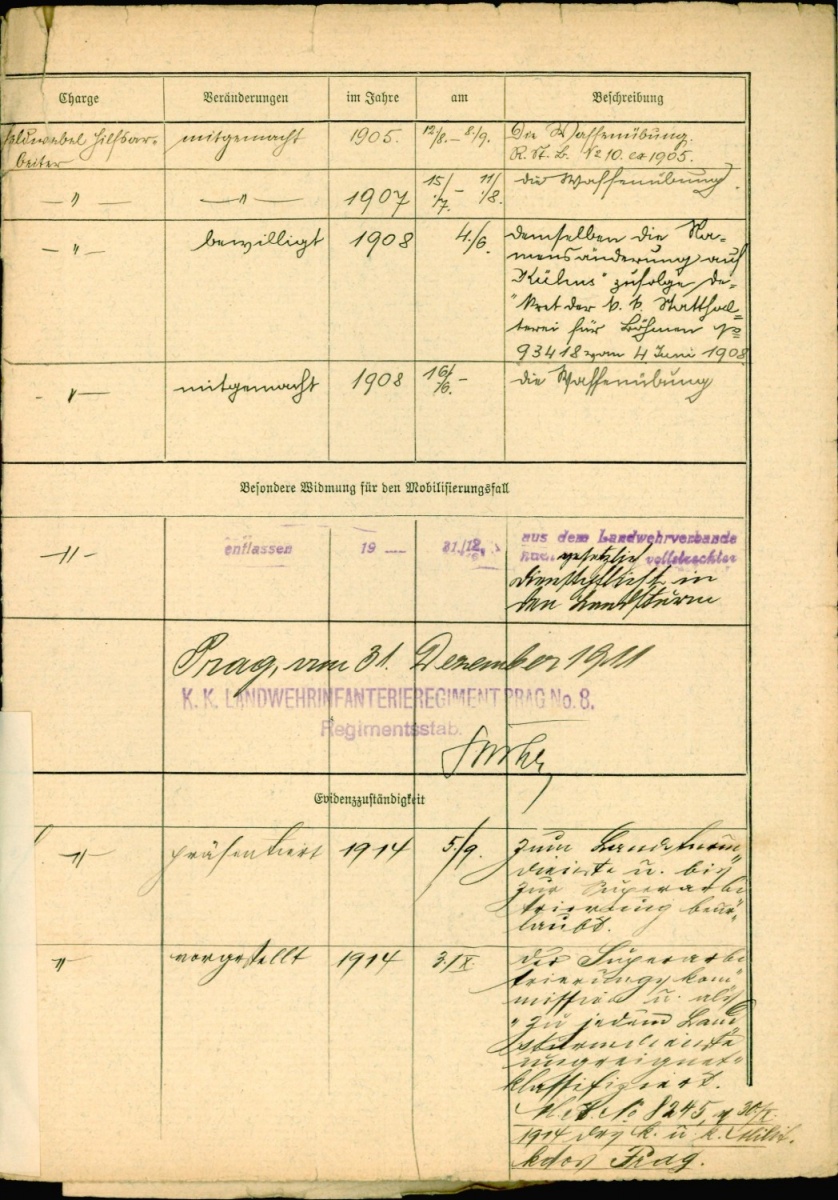 Charge Veränderungen im Jahre am Beschreibung
Feldwebel Hilfsar- mitgemacht 1905. 12/8. – 8/9. Die Waffenübung.
beiter R. St. B. No 10. ex 1905.
– " – – " – 1907 15/7. – 11/8. die Waffenübung.
– " – bewilligt 1908 4./6. demselben die Na-
mensänderung auf
"Kühns" zufolge De-
kret der k. k. Statthal-
terei für Böhmen No
93418 vom 4 Juni 1908
– " – mitgemacht 1908 16/6. – die Waffenübung
Besondere Widmung für den Mobilisierungsfall
– " – entlassen 19 — 31./12. aus dem Landwehrverbande
nach gesetzlich vollstreckter
Dienstpflicht in
den Landsturm
Prag, am 31. Dezember 1911
K. K. LANDWEHRINFANTERIEREGIMENT PRAG No. 8.
Regimentsstab.
Evidenzzuständigkeit
– " – präsentiert 1914 5./9. zum Landsturm
dienste u. bis
zur Superarbi
trierung beur-
laubt.
" vorgestellt 1914 3./X. der Superarbi
trierungskom
mission u. als
"zu jedem Land
sturmdienste
ungeeignet"
klassifiziert.
No 8245, v 30/X.
1914 des k. u. k. Milit.
kdos Prag.